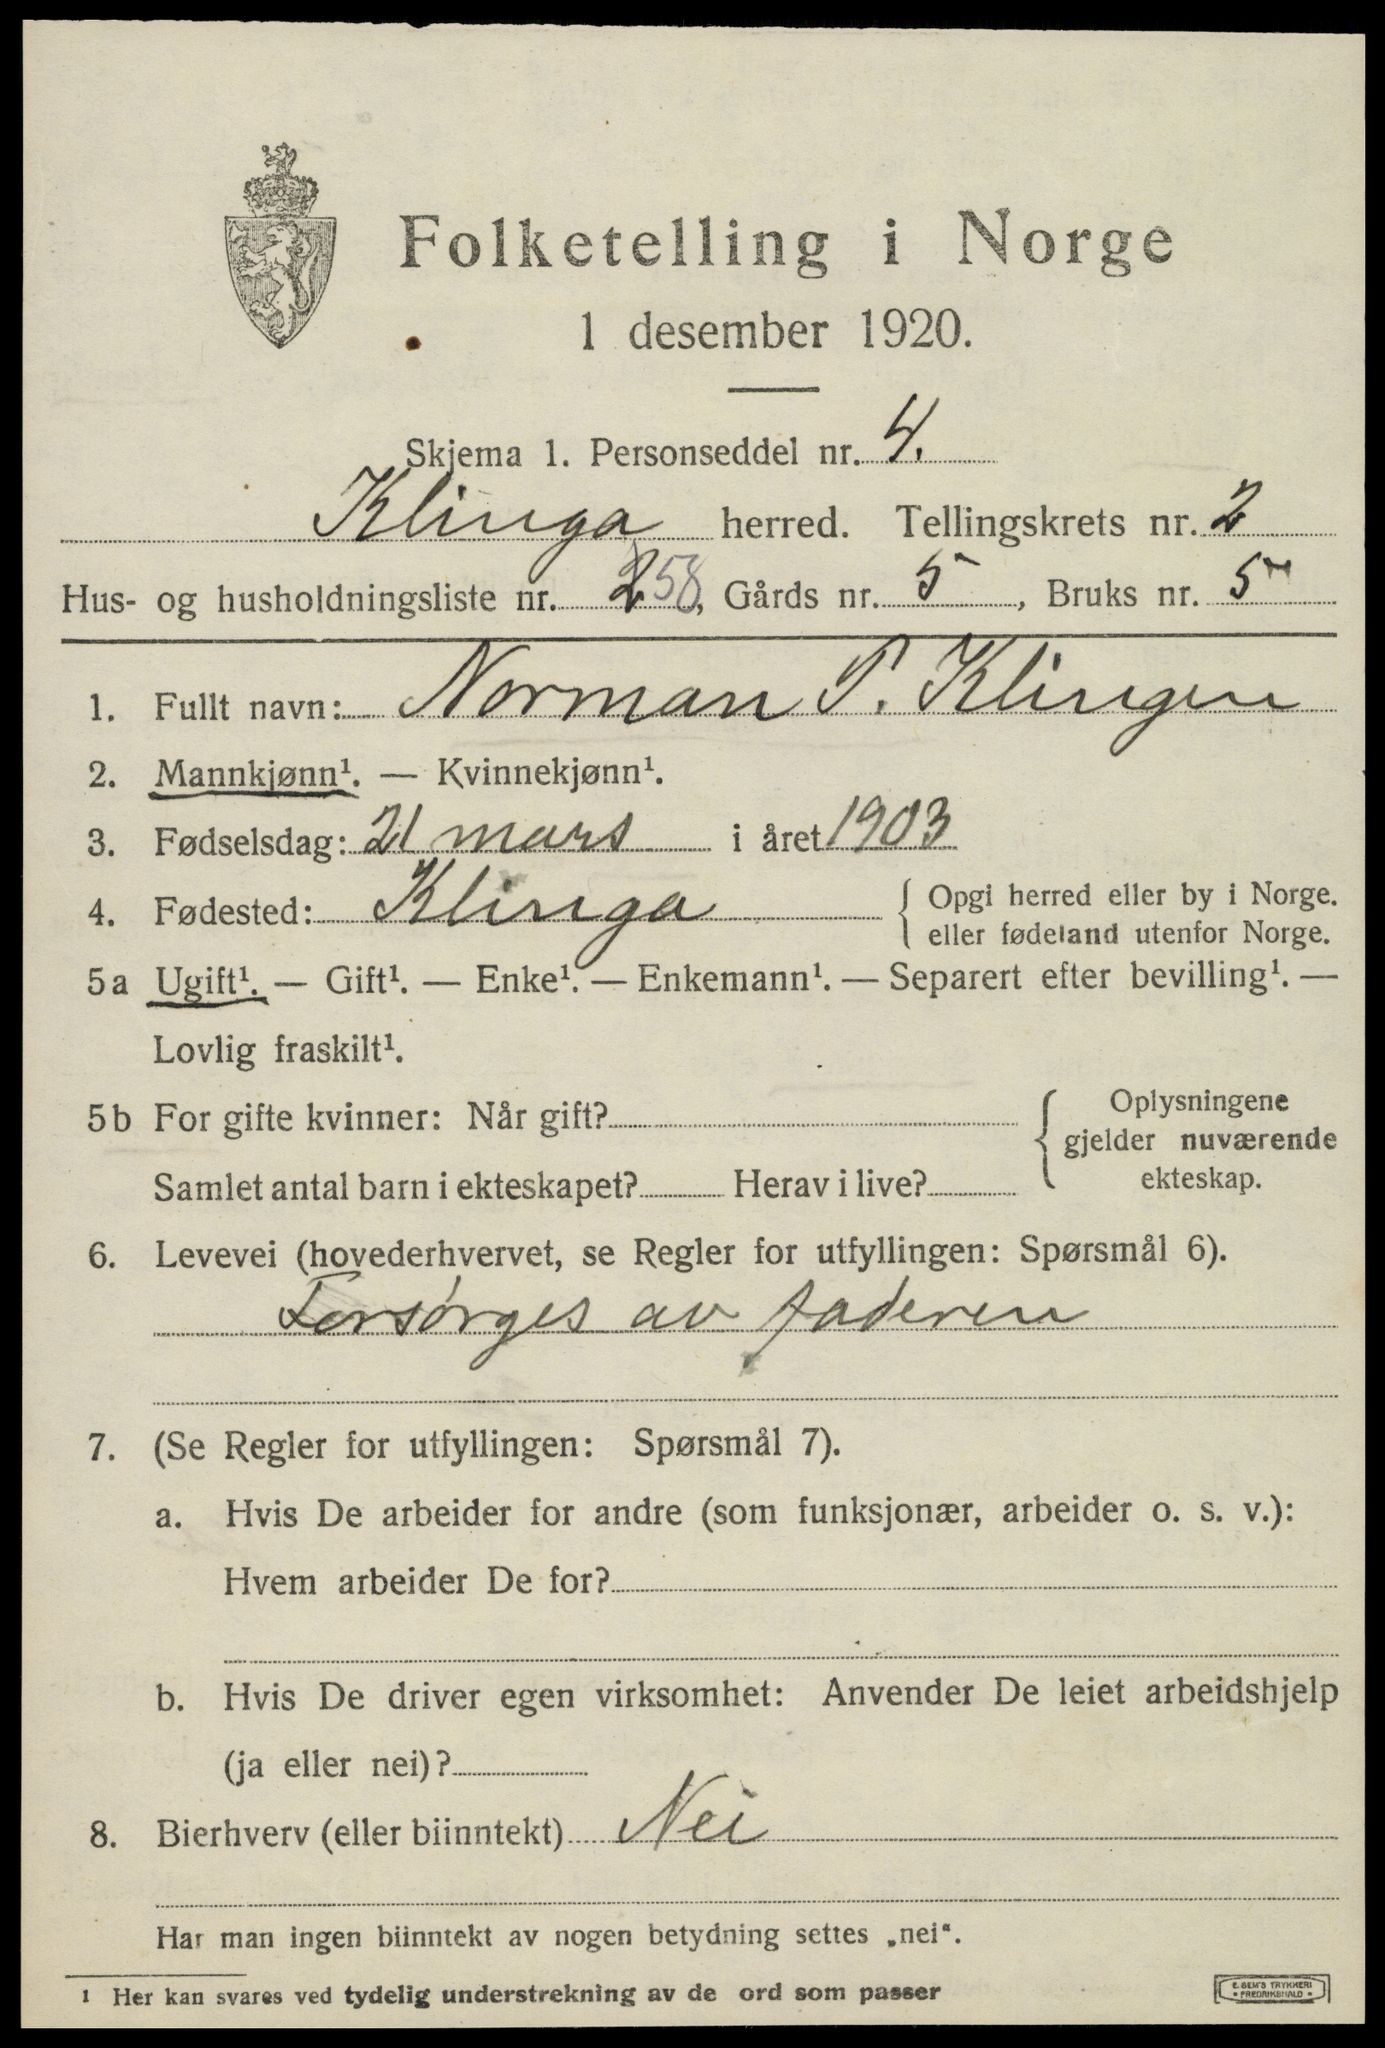 Folketelling i Norge
1 desember 1920.
Skjema 1. Personseddel nr. 4.
Klinga herred. Tellingskrets nr. 2
Hus- og husholdningsliste nr. 2 58, Gårds nr. 5, Bruks nr. 5
1. Fullt navn: Norman P. Klingen
2. Mannkjønn¹. — Kvinnekjønn¹.
3. Fødselsdag: 21 mars i året 1903
4. Fødested: Klinga { Opgi herred eller by i Norge.
eller fødeland utenfor Norge.
5a Ugift¹. — Gift¹. — Enke¹. — Enkemann¹. — Separert efter bevilling¹. —
Lovlig fraskilt¹.
5b For gifte kvinner: Når gift? { Oplysningene
gjelder nuværende
Samlet antal barn i ekteskapet? Herav i live? ekteskap.
6. Levevei (hovederhvervet, se Regler for utfyllingen: Spørsmål 6).
Forsørges av faderen
7. (Se Regler for utfyllingen: Spørsmål 7).
a. Hvis De arbeider for andre (som funksjonær, arbeider o. s. v.):
Hvem arbeider De for?
b. Hvis De driver egen virksomhet: Anvender De leiet arbeidshjelp
(ja eller nei)?
8. Bierhverv (eller biinntekt) Nei
Har man ingen biinntekt av nogen betydning settes „nei“.
¹ Her kan svares ved tydelig understrekning av de ord som passer
E. SEM'S TRYKKERI
• FREDRIKSHALD •